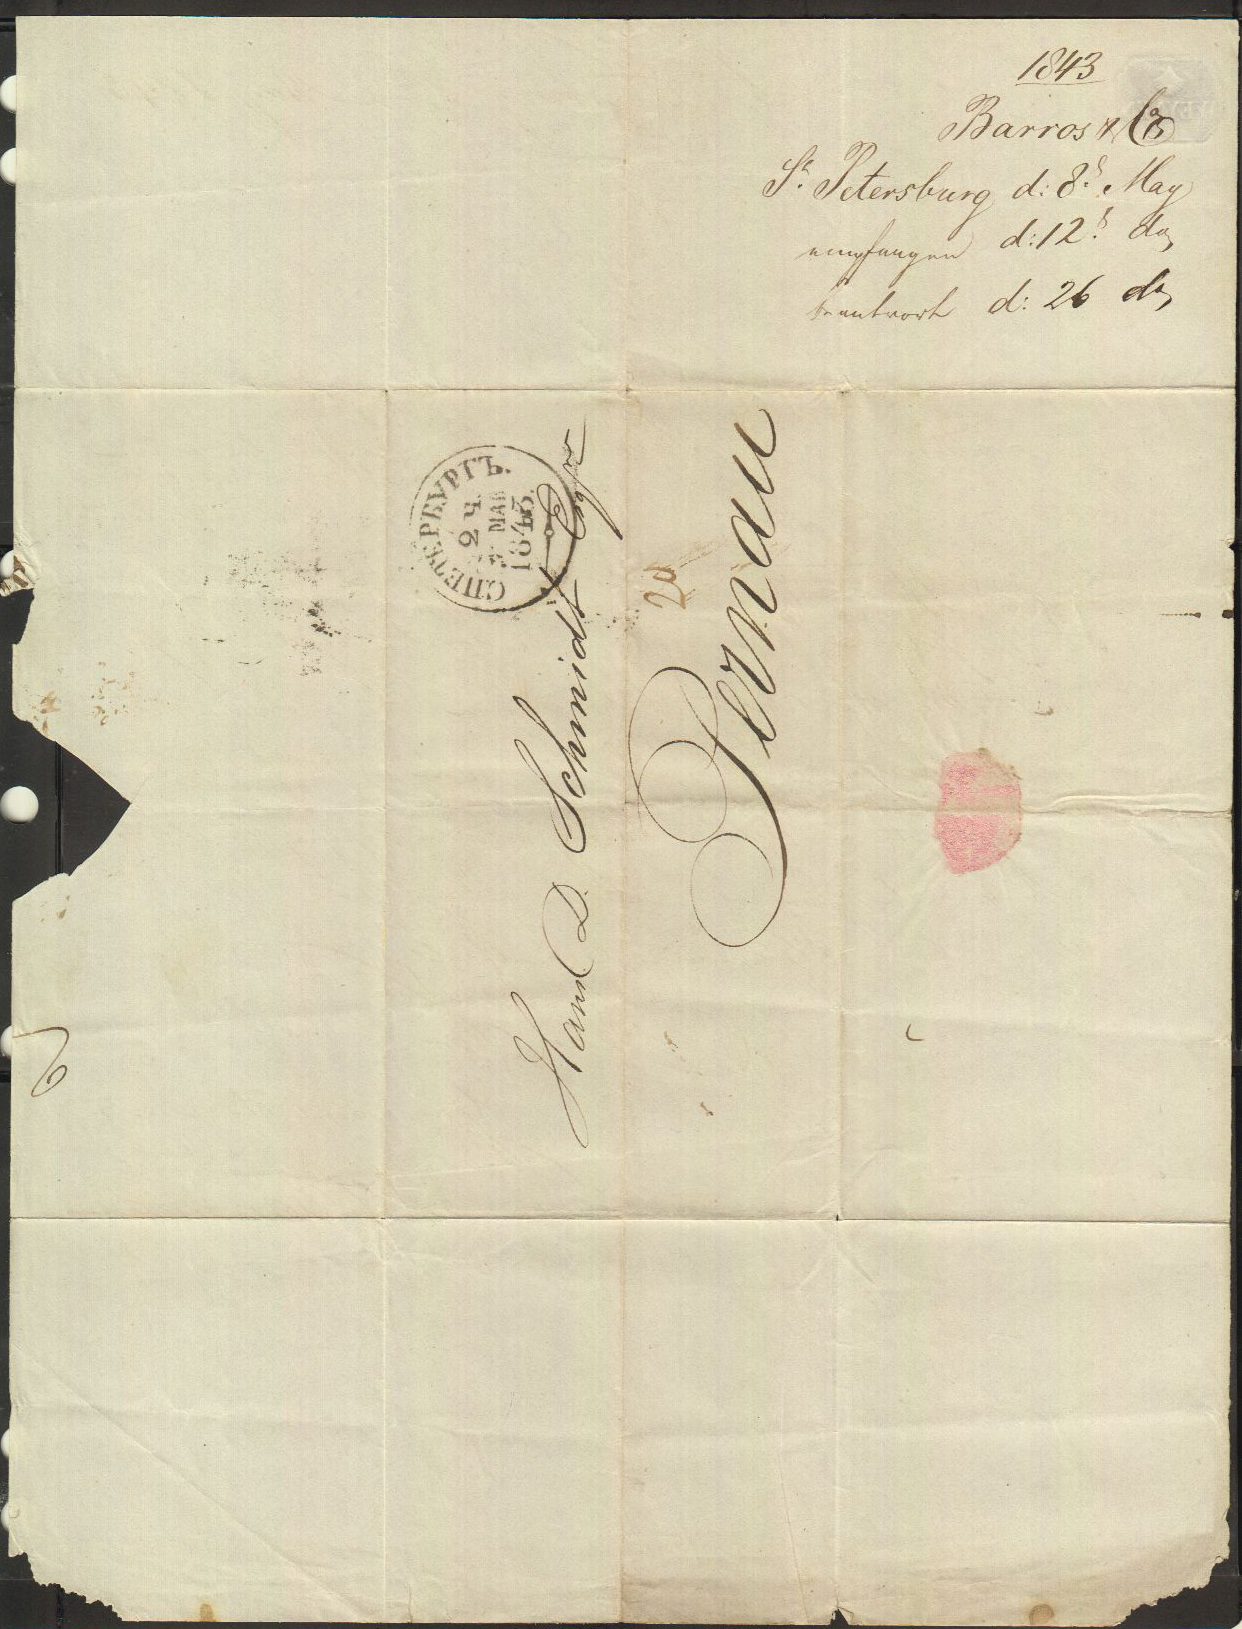 1843
Barros & Co
St. Petersburg d: 8t May
empfangen d: 12t do
beantwort d: 26 do
С.ПЕТЕРБУРГЪ.
2 Ч.
МАЯ
1843.
Hans D. Schmidt Esqre
Pernau